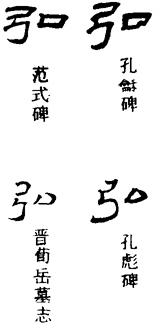 弘
孔龢碑
弘
范式碑
弘
孔彪碑
弘
晋荀岳墓志